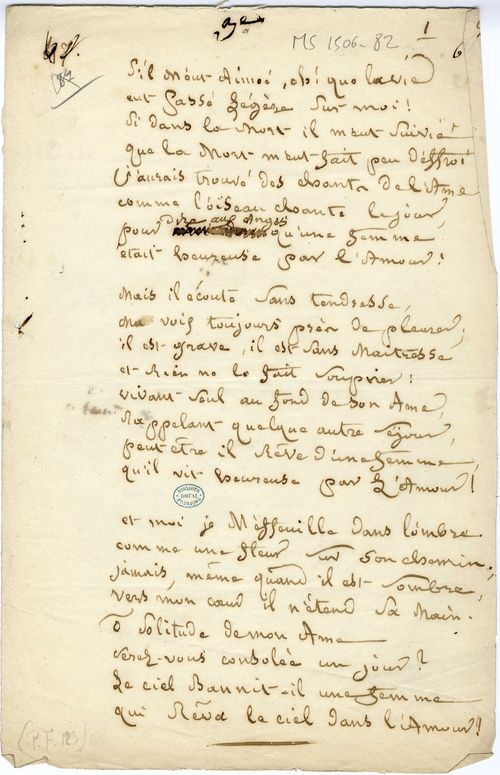 MS 1506-82
1
6
82.
S'il M'eut Aimée, oh! que la vie
eut passé légère sur moi!
Si dans la Mort il m'eut suivie
que la Mort m'eut fait peu d'effroi!
j'aurais trouvé des chants de l'Ame
comme l'oiseau chante le jour,
dire aux Anges
pour qu'une femme
était heureuse par l'Amour!
Mais il écoute sans tendresse,
Ma voix toujours près de pleurer;
il est grave, il est sans Maitresse
et Rien ne le fait soupirer!
vivant seul au fond de son Ame,
Rappelant quelque autre séjour,
peut être il Rêve d'une femme
qu'il vit heureuse par l'Amour!
et moi je M'effeuille dans l'ombre
comme une fleur sur son chemin;
jamais, même quand il est sombre,
vers mon cœur il n'étend sa Main.
ô Solitude de mon Ame
serez-vous consolée un jour?
Le ciel Bannit-il une femme
qui Rêva le ciel dans l'Amour?
(P.F. 123)